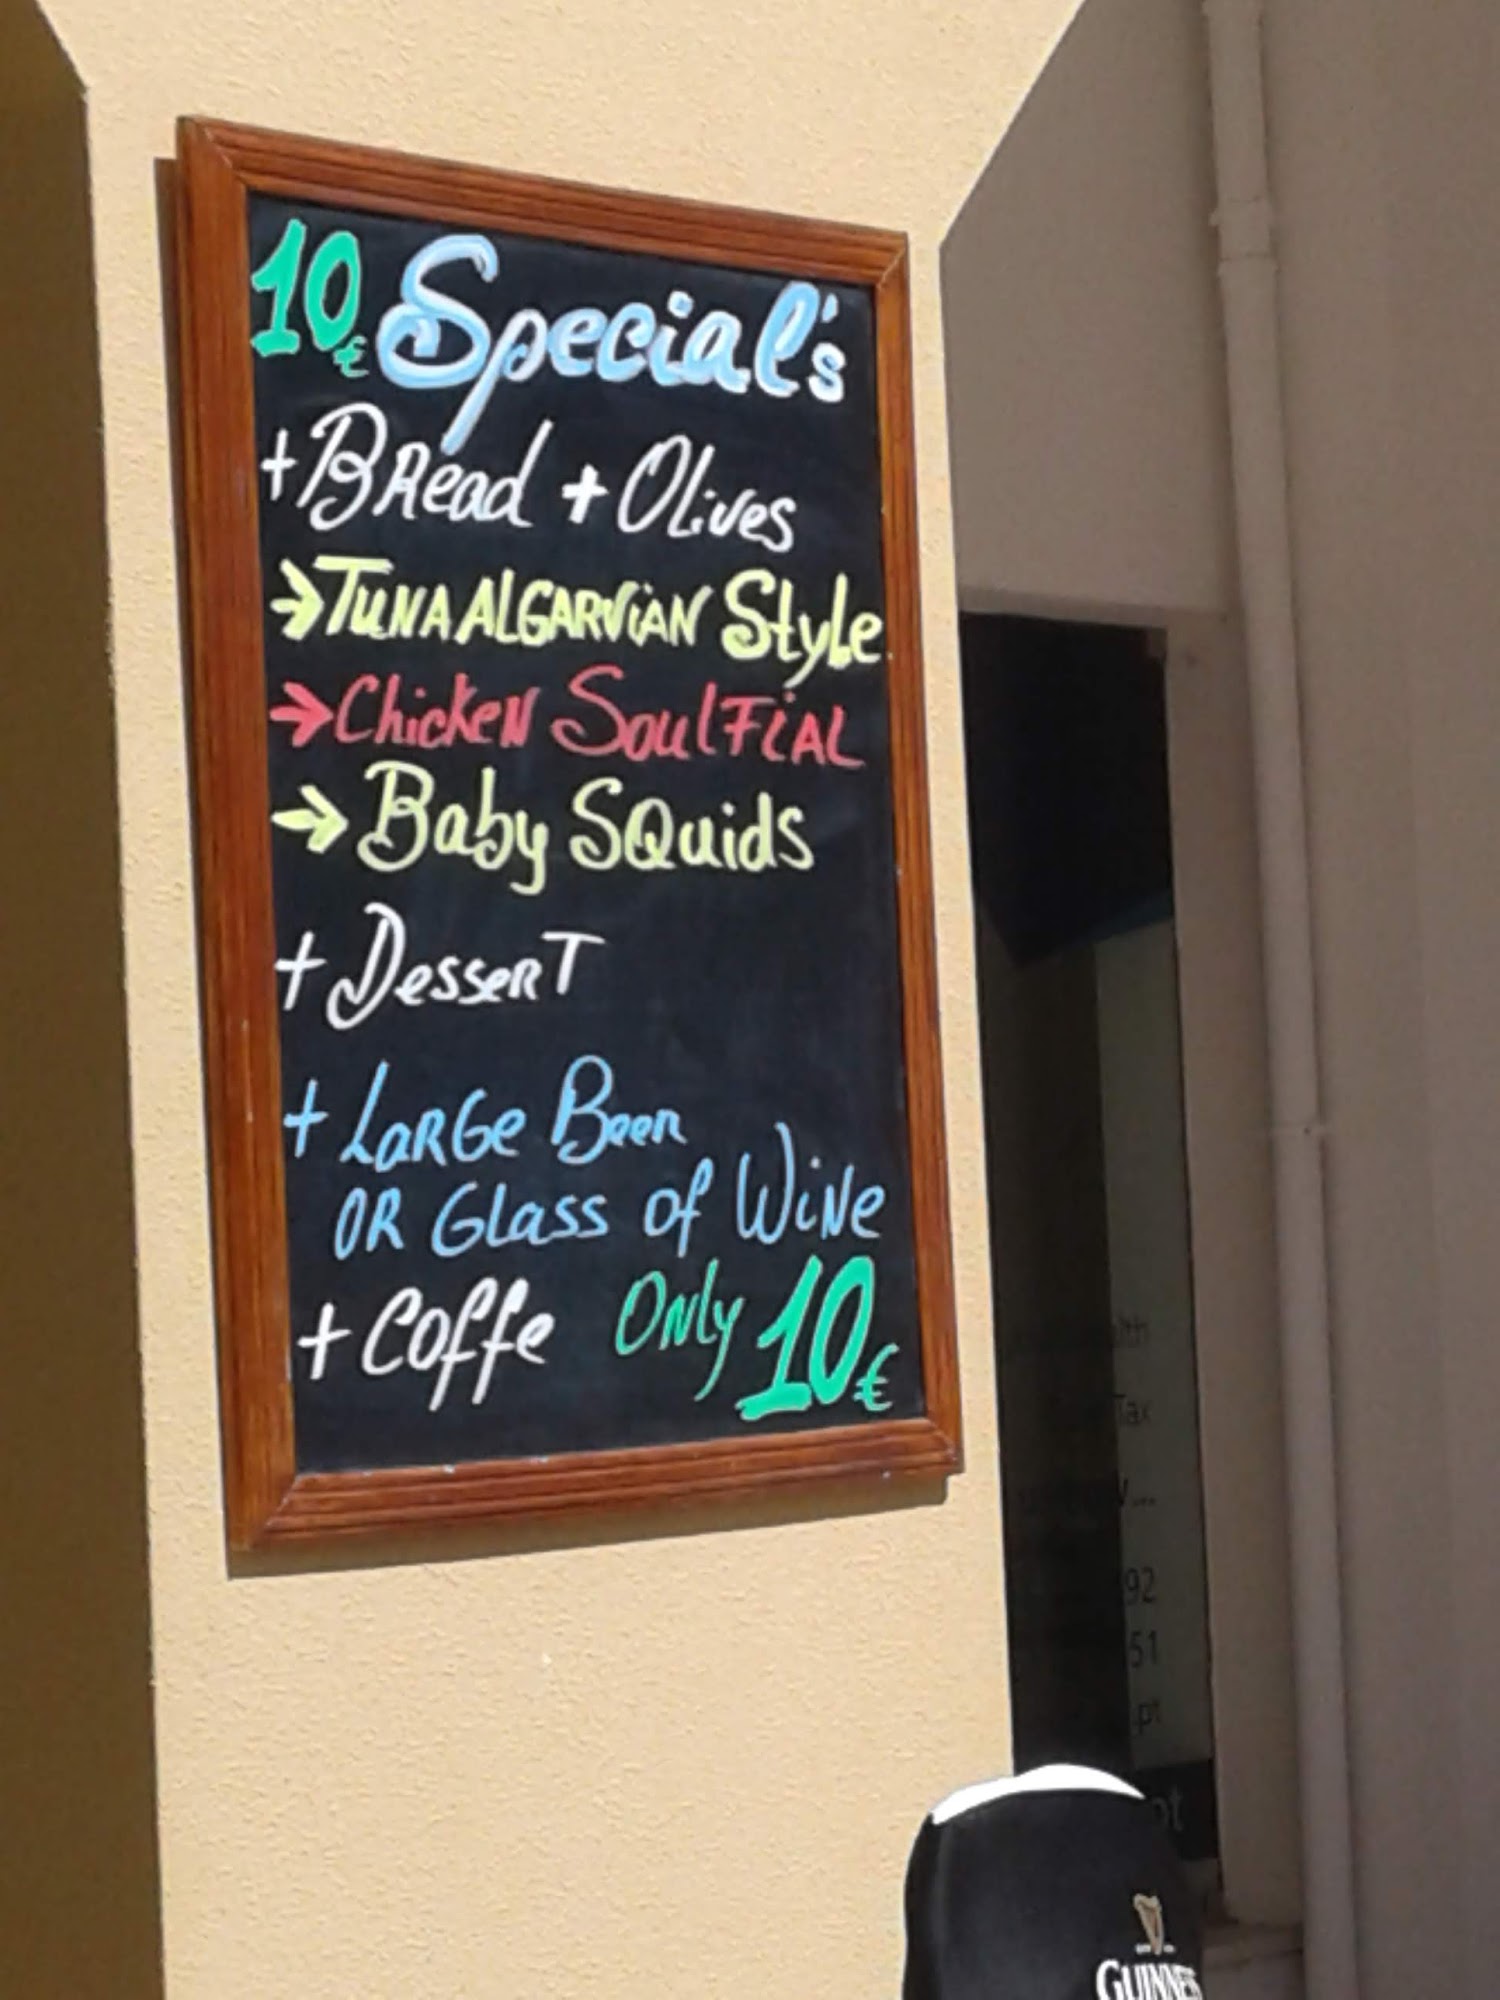 10€ Special's
+ Bread + Olives
→ Tuna Algarvian Style
→ Chicken Soulfial
→ Baby Squids
+ Dessert
+ Large Beer
or Glass of Wine
+ Coffe Only 10€
lth
Tax
92
51
.pt
pt
GUINNES